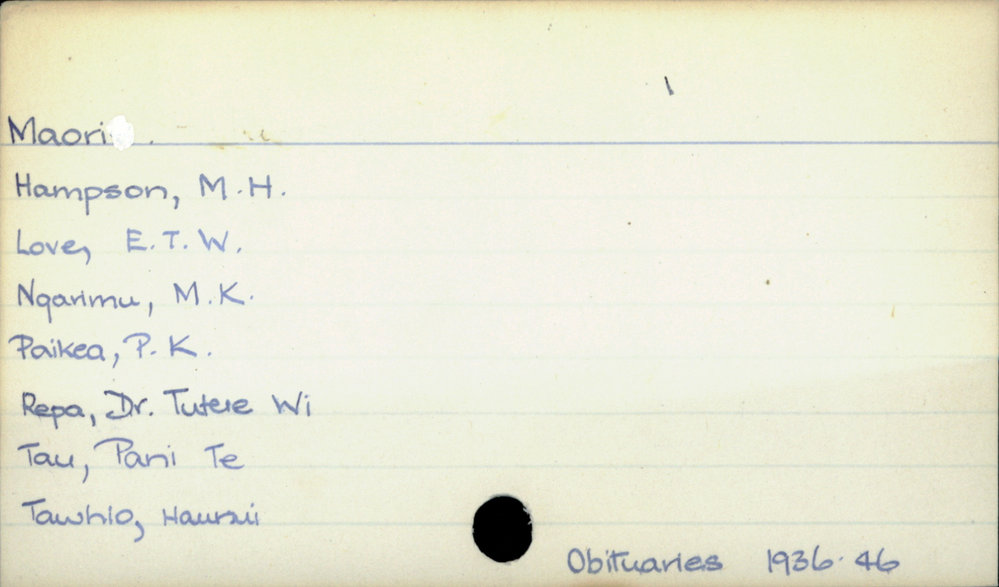 Maori
Hampson, M.H.
Love, E.T.W.
Ngarimu, M.K.
Paikea, P.K.
Repa, Dr. Tutere Wi
Tau, Pani Te
Tawhio,
Obituaries 1936-46